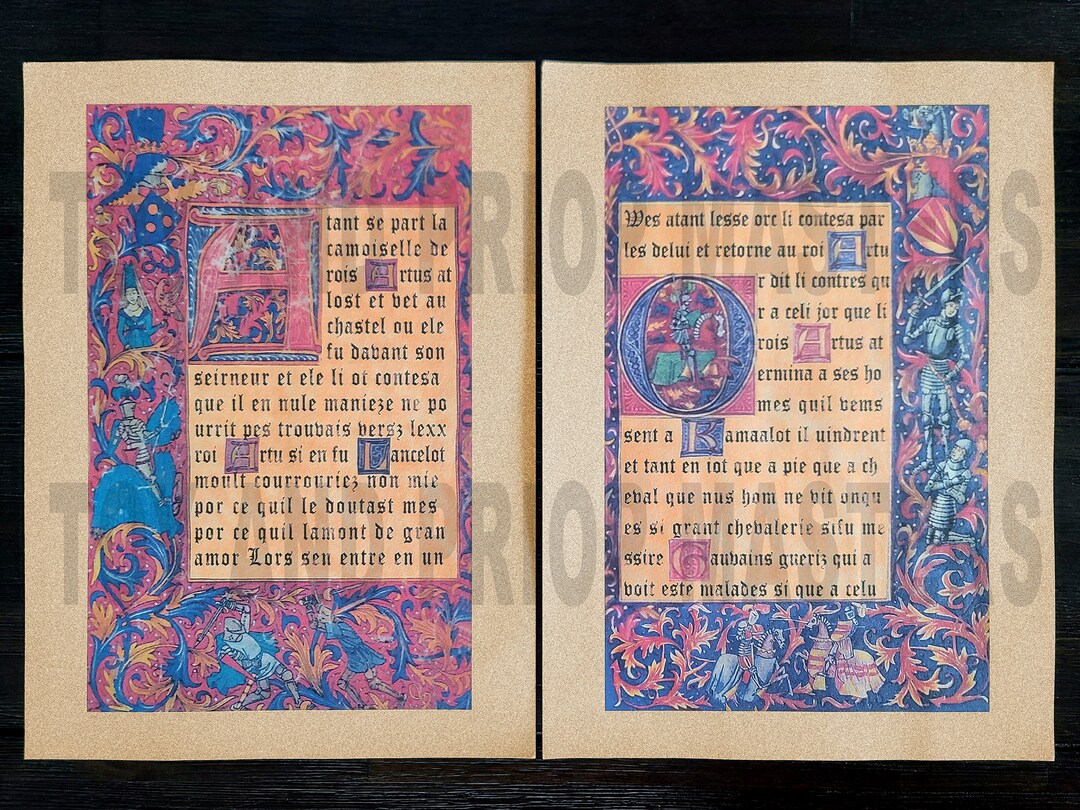 A
tant se part la
camoiselle de
rois Artus at
lost et vet au
chastel ou ele
fu davant son
seirneur et ele li ot contesa
que il en nule manieze ne po
urrit pes trouvais versz lexx
roi Artu si en fu Lancelot
moult courrouriez non mie
por ce quil le doutast mes
por ce quil lamont de gran
amor Lors sen entre en un
Mes atant lesse orc li contesa par
les delui et retorne au roi Artu
O
r dit li contres qu
r a celi jor que li
rois Artus at
ermina a ses ho
mes quil vems
sent a Kamaalot il uindrent
et tant en iot que a pie que a ch
eval que nus hom ne vit onqu
es si grant chevalerie sifu me
ssire Gauvains gueriz qui a
voit este malades si que a celu
PRIOR MASTERS
PRIOR MASTERS